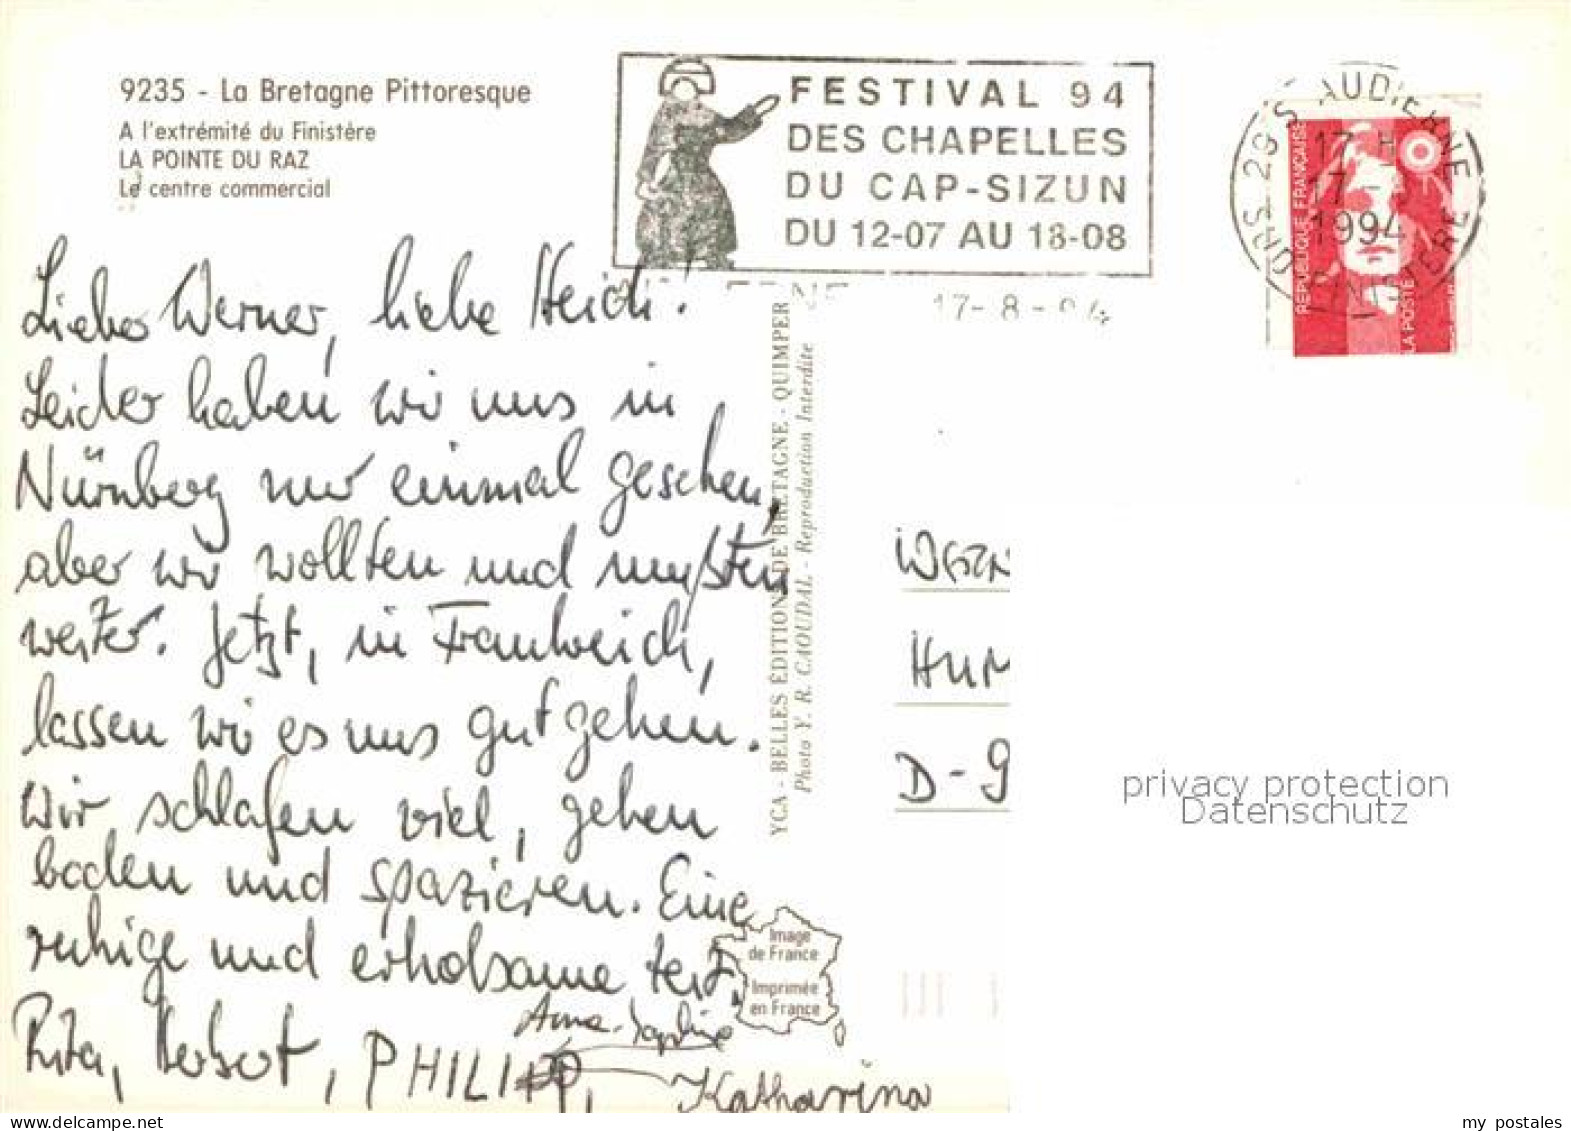 9235 - La Bretagne Pittoresque
A l'extrémité du Finistère
LA POINTE DU RAZ
Le centre commercial
FESTIVAL 94
DES CHAPELLES
DU CAP-SIZUN
DU 12-07 AU 18-08
17-8-94
29 S AUDIERNE
17 H
17-
1994
FINISTERE
REPUBLIQUE FRANÇAISE
LA POSTE
Lieber Werner, liebe Heidi!
Leider haben wir uns in
Nürnberg nur einmal gesehen,
aber wir wollten und mußten
weiter. Jetzt, in Frankreich,
lassen wir es uns gut gehen.
Wir schlafen viel, gehen
baden und spazieren. Eine
ruhige und erholsame Zeit.
Rita, Herbert, PHILIPP,
Anna-Sophie
Katharina
YCA - BELLES ÉDITIONS DE BRETAGNE - QUIMPER
Photo Y. R. CAOUDAL - Reproduction Interdite
Image
de France
Imprimée
en France
WERN
HUM
D-9
privacy protection
Datenschutz
my postales